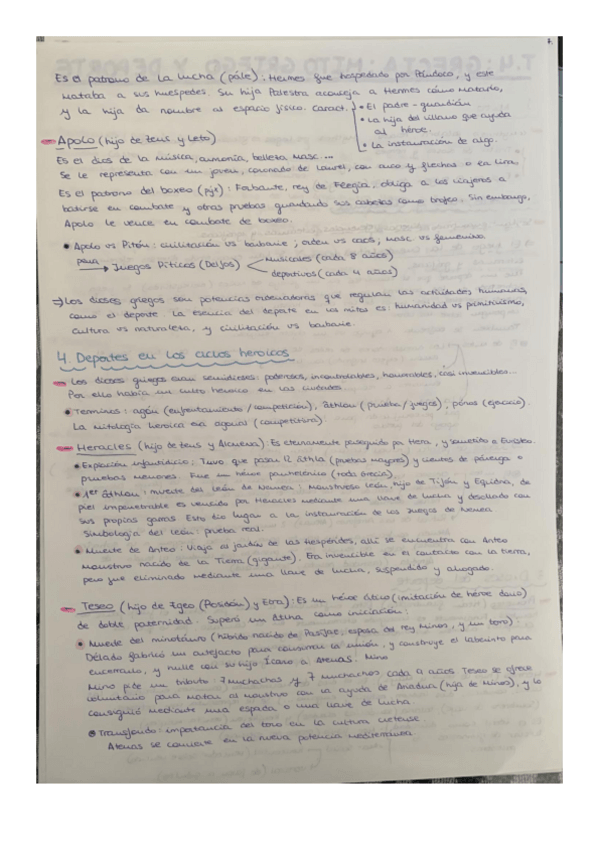 Es el patrono de la lucha (pále): Hermes fue hospedado por Pándoco, y este
mataba a sus huéspedes. Su hija Palestra aconseja a Hermes cómo matarlo,
y la hija da nombre al espacio físico. Caract.
• El padre-guardián
• La hija del villano que ayuda
al héroe.
• La instauración de algo.
Apolo (hijo de Zeus y Leto)
Es el dios de la música, armonía, belleza masc...
Se le representa con un joven, coronado de laurel, con arco y flechas o la lira.
Es el patrono del boxeo (pýx): Forbante, rey de Flegia, obliga a los viajeros a
batirse en combate y otras pruebas guardando sus cabezas como trofeo. Sin embargo,
Apolo le vence en combate de boxeo.
• Apolo vs Pitón: civilización vs barbarie; orden vs caos, masc vs femenino
para → Juegos Píticos (Delfos)
musicales (cada 8 años)
deportivos (cada 4 años)
⇒ Los dioses griegos son potencias ordenadoras que regulan las actividades humanas,
como el deporte. La esencia del deporte en los mitos es: humanidad vs primitivismo,
cultura vs naturaleza, y civilización vs barbarie.
4. Deportes en los ciclos heroicos
Los dioses griegos eran semidioses: poderosos, incontrolables, honorables, casi invencibles...
Por ello había un culto heroico en las ciudades.
• Términos: agón (enfrentamiento/competición), áthlon (prueba/juegos), pónos (ejercicio).
La mitología heroica era agonal (competitiva).
Heracles (hijo de Zeus y Alcmena): Es eternamente perseguido por Hera, y sometido a Euristeo.
• Expiación infanticidio: Tuvo que pasar 12 áthla (pruebas mayores) y cientos de párerga o
pruebas menores. Fue un héroe panhelénico (toda Grecia)
• 1er áthlon: muerte del león de Nemea: Monstruoso león, hijo de Tifón y Equidna, de
piel impenetrable es vencido por Heracles mediante una llave de lucha y desollado con
sus propias garras. Esto dio lugar a la instauración de los Juegos de Nemea
Simbología del león: prueba real.
• Muerte de Anteo: Viaja al jardín de las Hespérides, allí se encuentra con Anteo
monstruo nacido de la Tierra (gigante). Era invencible en el contacto con la tierra,
pero fue eliminado mediante una llave de lucha, suspendido y ahogado.
Teseo (hijo de Egeo (Poseidón) y Etra): Es un héroe ático (imitación de héroe dorio)
de doble paternidad. Superó un áthla como iniciación.
• Muerte del minotauro (híbrido nacido de Pasífae, esposa del rey Minos, y un toro)
Dédalo fabricó un artefacto para consumar la unión, y construye el laberinto para
encerrarlo, y huye con su hijo Ícaro a Atenas. Mino
Mino pide un tributo: 7 muchachas y 7 muchachos cada 9 años Teseo se ofrece
voluntario para matar al monstruo con la ayuda de Ariadna (hija de Minos), y lo
consiguió mediante una espada o una llave de lucha
• Transfondo: importancia del toro en la cultura cretense.
Atenas se convierte en la nueva potencia mediterránea